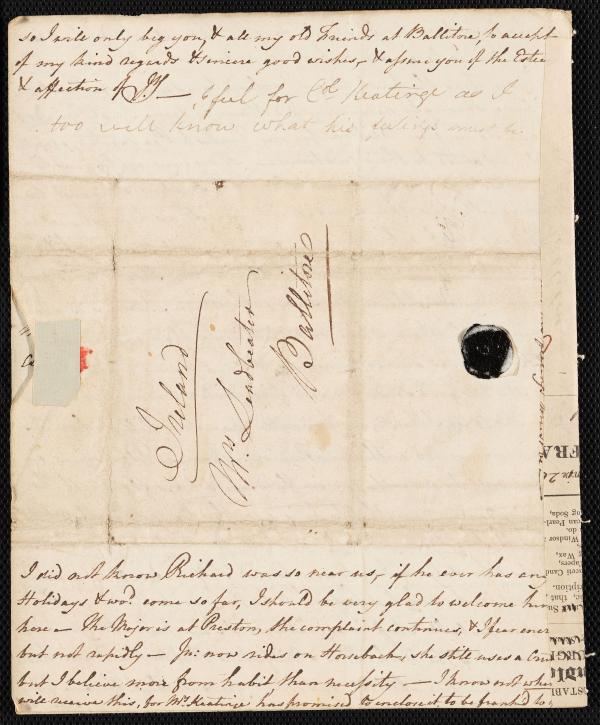 so I will only beg you, & all my old Friends at Ballitore, to accept
of my kind regards & sincere good wishes, & assure you of the Estee
& affection of
feel for Col Keatinge as I
too well know what his feelings must be
Ireland
Mrs Leadbeater
Ballitore
I did not know Richard was so near us, if he ever has any
Holidays & wod. come so far, I should be very glad to welcome him
here — The Major is at Preston, the complaint continues, & I fear
but not rapidly — now rides on Horseback, she still uses a
but I believe more from habit than necessity — I know not when
will receive this, for Mrs Keatinge has promised to enclose it to be frank'd to
FRA
ng Soda,
can Pearl-
do.
Windsor
Wax,
apers,
cription.
that
STABI